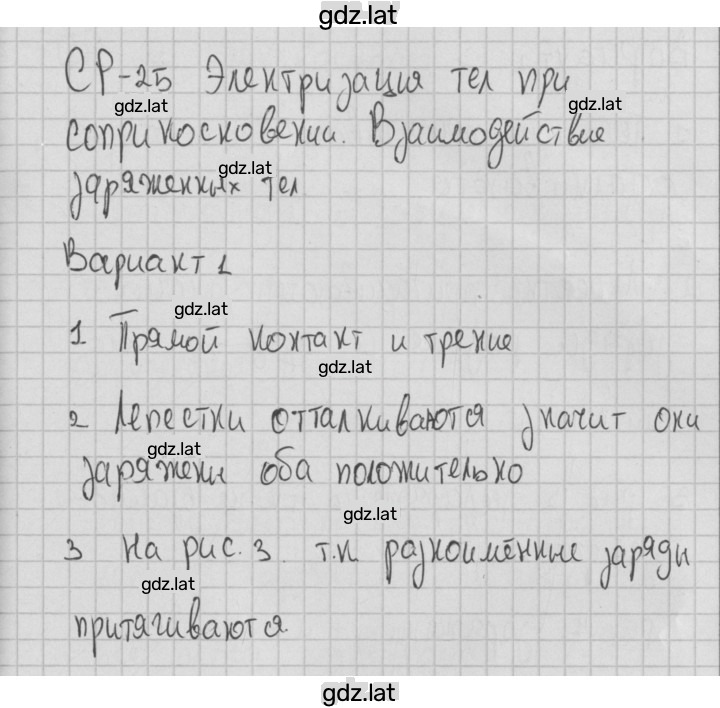 gdz.lat
СР-25 Электризация тел при
gdz.lat
gdz.lat
соприкосновении. Взаимодействие
gdz.lat
заряженных тел
Вариант 1
gdz.lat
1 Прямой контакт и трение
gdz.lat
2 Лепестки отталкиваются значит они
gdz.lat
заряжены оба положительно
gdz.lat
3 На рис. 3. т.к разноимённые заряды
gdz.lat
притягиваются.
gdz.lat